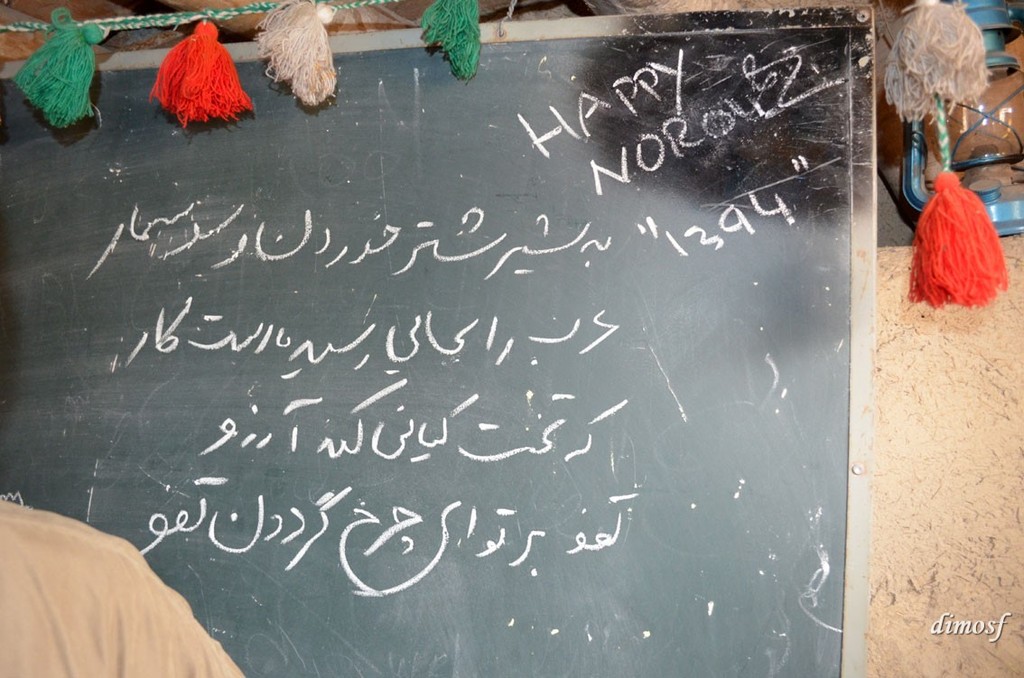 HAPPY
NOROUZ
"1394"
به شیر شتر خوردن و سوسمار
عرب را بجائی رسیده است کار
که تخت کیانی کند آرزو
تفو بر تو ای چرخ گردون تفو
dimosf